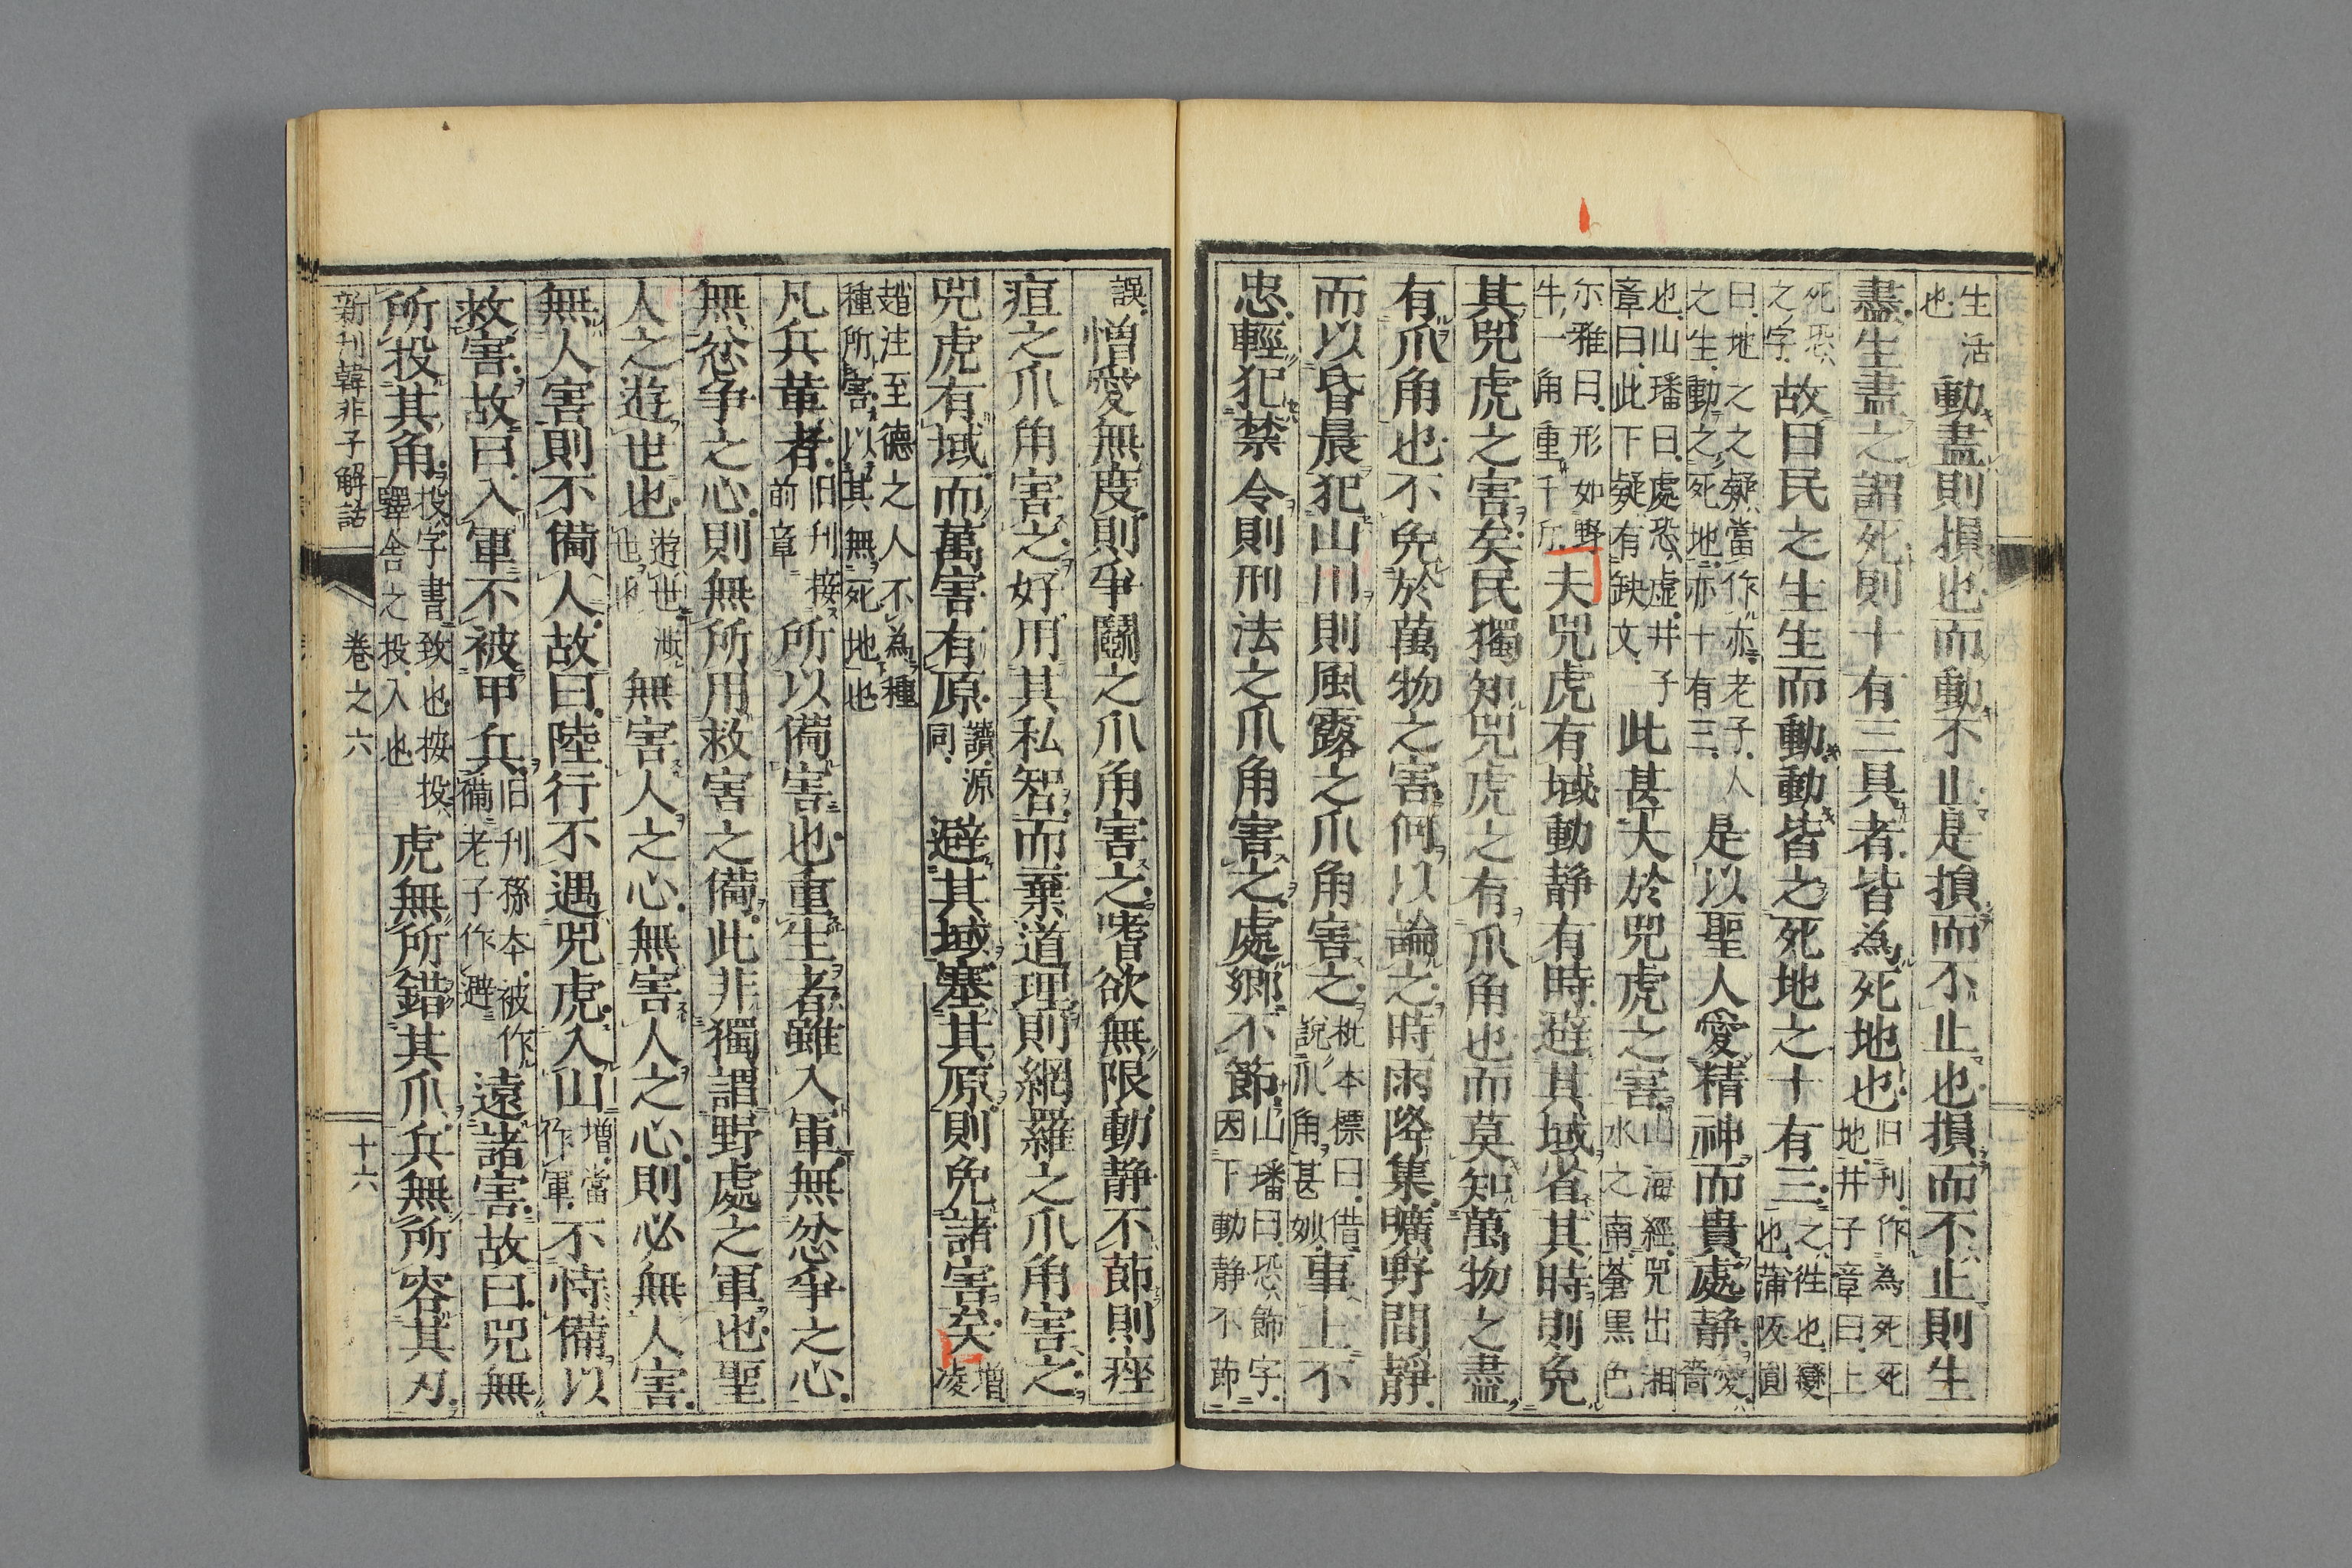 生活也動盡則損也而動不止是損而不止也損而不止則生
盡生盡之謂死則十有三具者皆為死地也旧刊作為死死地井子章曰上
死恐之字故曰民之生生而動動皆之死地之十有三之徃也變也蒲阪圓
曰地之之疑當作亦老子人之生動之死地亦十有三是以聖人愛精神而貴處静愛嗇
也山璠曰處恐虚井子章曰此下疑有缺文此甚大於兕虎之害山海經兕出湘水之南蒼黒色
尓雅曰形如野牛一角重千斤夫兕虎有域動静有時避其域省其時則免
其兕虎之害矣民獨知兕虎之有爪角也而莫知萬物之盡
有爪角也不免於萬物之害何以論之時雨降集曠野間靜
而以昏晨犯山川則風露之爪角害之枇本標曰借説爪角甚妙事上不
忠輕犯禁令則刑法之爪角害之處郷不節山璠曰恐飾字因下動静不節
誤憎愛無度則爭鬭之爪角害之嗜欲無限動静不節則痤
疽之爪角害之好用其私智而棄道理則網羅之爪角害之
兕虎有域而萬害有原讀源同避其域塞其原則免諸害矣増凌
趙注至德之人不為種種所害以其無死地也
凡兵革者旧刊接前章所以備害也重生者雖入軍無忿爭之心
無忿争之心則無所用救害之備此非獨謂野處之軍也聖
人之遊世也遊世漑也無害人之心無害人之心則必無人害
無人害則不備人故曰陸行不遇兕虎入山増當作軍不恃備以
救害故曰入軍不被甲兵旧刊孫本被作備老子作避遠諸害故曰兕無
所投其角投字書致也按投驛舎之投入也虎無所錯其爪兵無所容其刃
新刊韓非子解詁　卷之六　十六